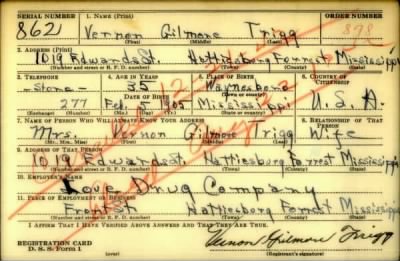 SERIAL NUMBER 1. NAME (Print) ORDER NUMBER
862 Vernon Gilmore Trigg 898
(First) (Middle) (Last)
2. ADDRESS (Print)
1019 Edwards St. Hattiesburg Forrest Mississippi
(Number and street or R. F. D. number) (Town) (County) (State)
3. TELEPHONE 4. AGE IN YEARS 5. PLACE OF BIRTH 6. COUNTRY OF CITIZENSHIP
Store 35 Waynesboro
DATE OF BIRTH (Town or county)
277 Feb. 5 1905 Mississippi U.S.A.
(Exchange) (Number) (Mo.) (Day) (Yr.) (State or country)
7. NAME OF PERSON WHO WILL ALWAYS KNOW YOUR ADDRESS 8. RELATIONSHIP OF THAT PERSON
Mrs. Vernon Gilmore Trigg Wife
(Mr., Mrs., Miss) (First) (Middle) (Last)
9. ADDRESS OF THAT PERSON
1019 Edwards St. Hattiesburg Forrest Mississippi
(Number and street or R. F. D. number) (Town) (County) (State)
10. EMPLOYER'S NAME
Love Drug Company
11. PLACE OF EMPLOYMENT OR BUSINESS
Front St Hattiesburg Forrest Mississippi
(Number and street or R. F. D. number) (Town) (County) (State)
I AFFIRM THAT I HAVE VERIFIED ABOVE ANSWERS AND THAT THEY ARE TRUE.
REGISTRATION CARD
D. S. S. Form 1 Vernon Gilmore Trigg
(Registrant's signature)